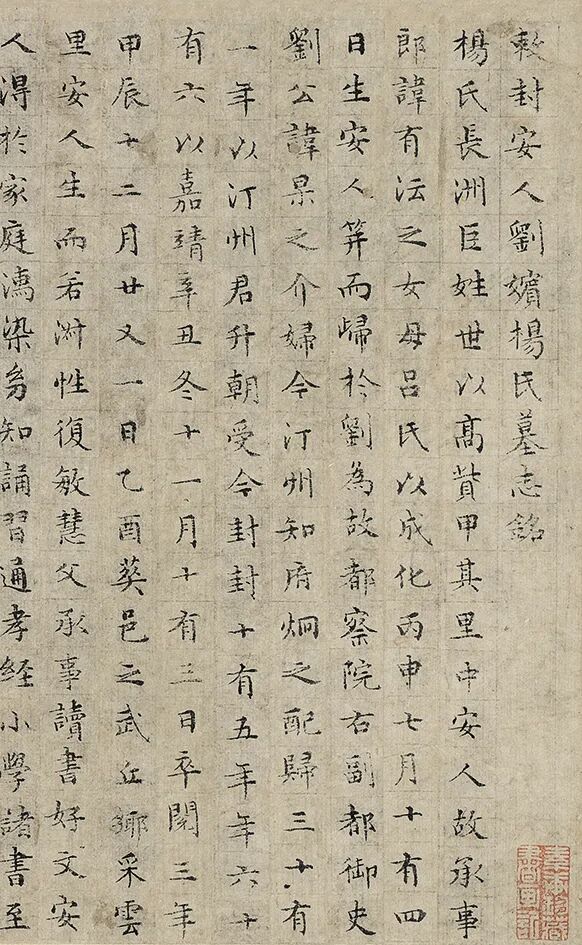 敕封安人劉嬪楊氏墓志銘
楊氏長洲巨姓世以高貲甲其里中安人故承事
郎諱有沄之女母呂氏以成化丙申七月十有四
日生安人笄而歸於劉為故都察院右副都御史
劉公諱杲之介婦今汀州知府炯之配歸三十有
一年以汀州君升朝受今封封十有五年年六十
有六以嘉靖辛丑冬十一月十有三日卒閱三年
甲辰十二月廿又一日乙酉葬邑之武丘鄉采雲
里安人生而若淑性復敏慧父承事讀書好文安
人淂於家庭濡染多知誦習通孝經小學諸書至